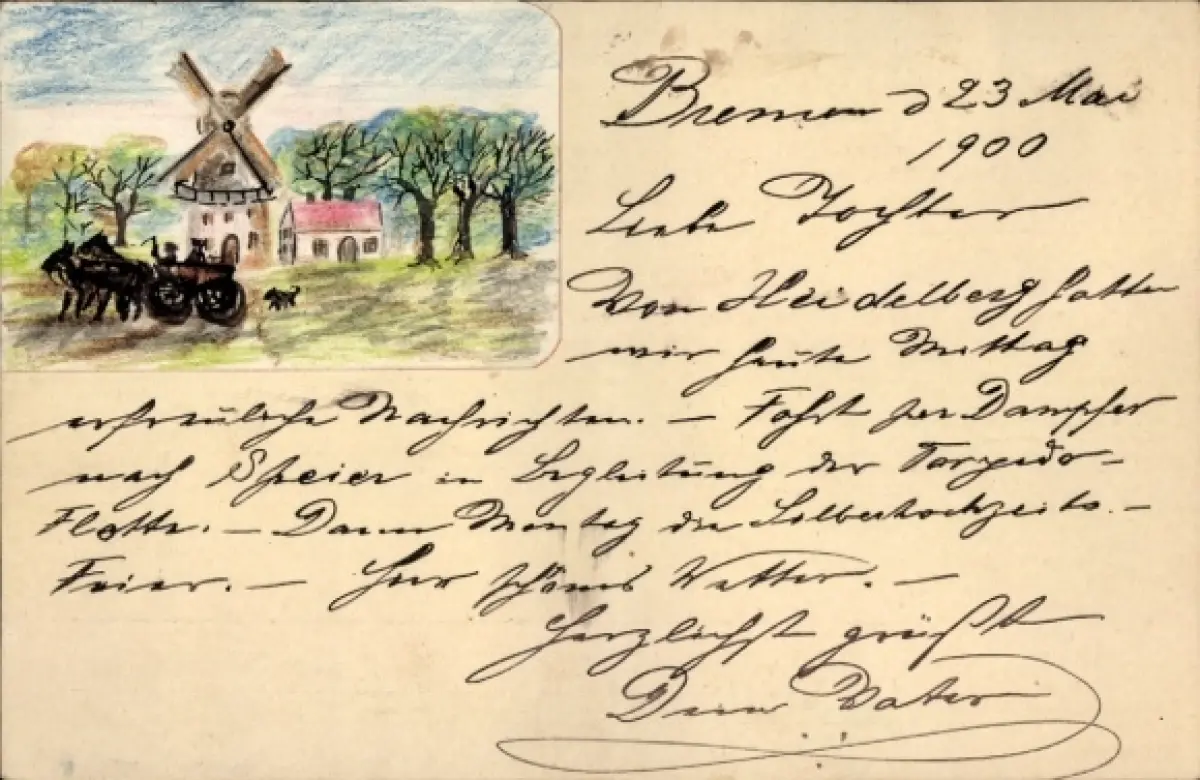 Bremen d 23 Mai
1900
Liebe Tochter
Von Heidelberg hatten
wir heute Mittag
erfreuliche Nachrichten. — Fahrt per Dampfer
nach Speier in Begleitung der Torpedo-
Flotte. — Dann Montag die Silberhochzeits. —
Feier. — Hier schönes Wetter. —
Herzlichst grüßt
Dein Vater